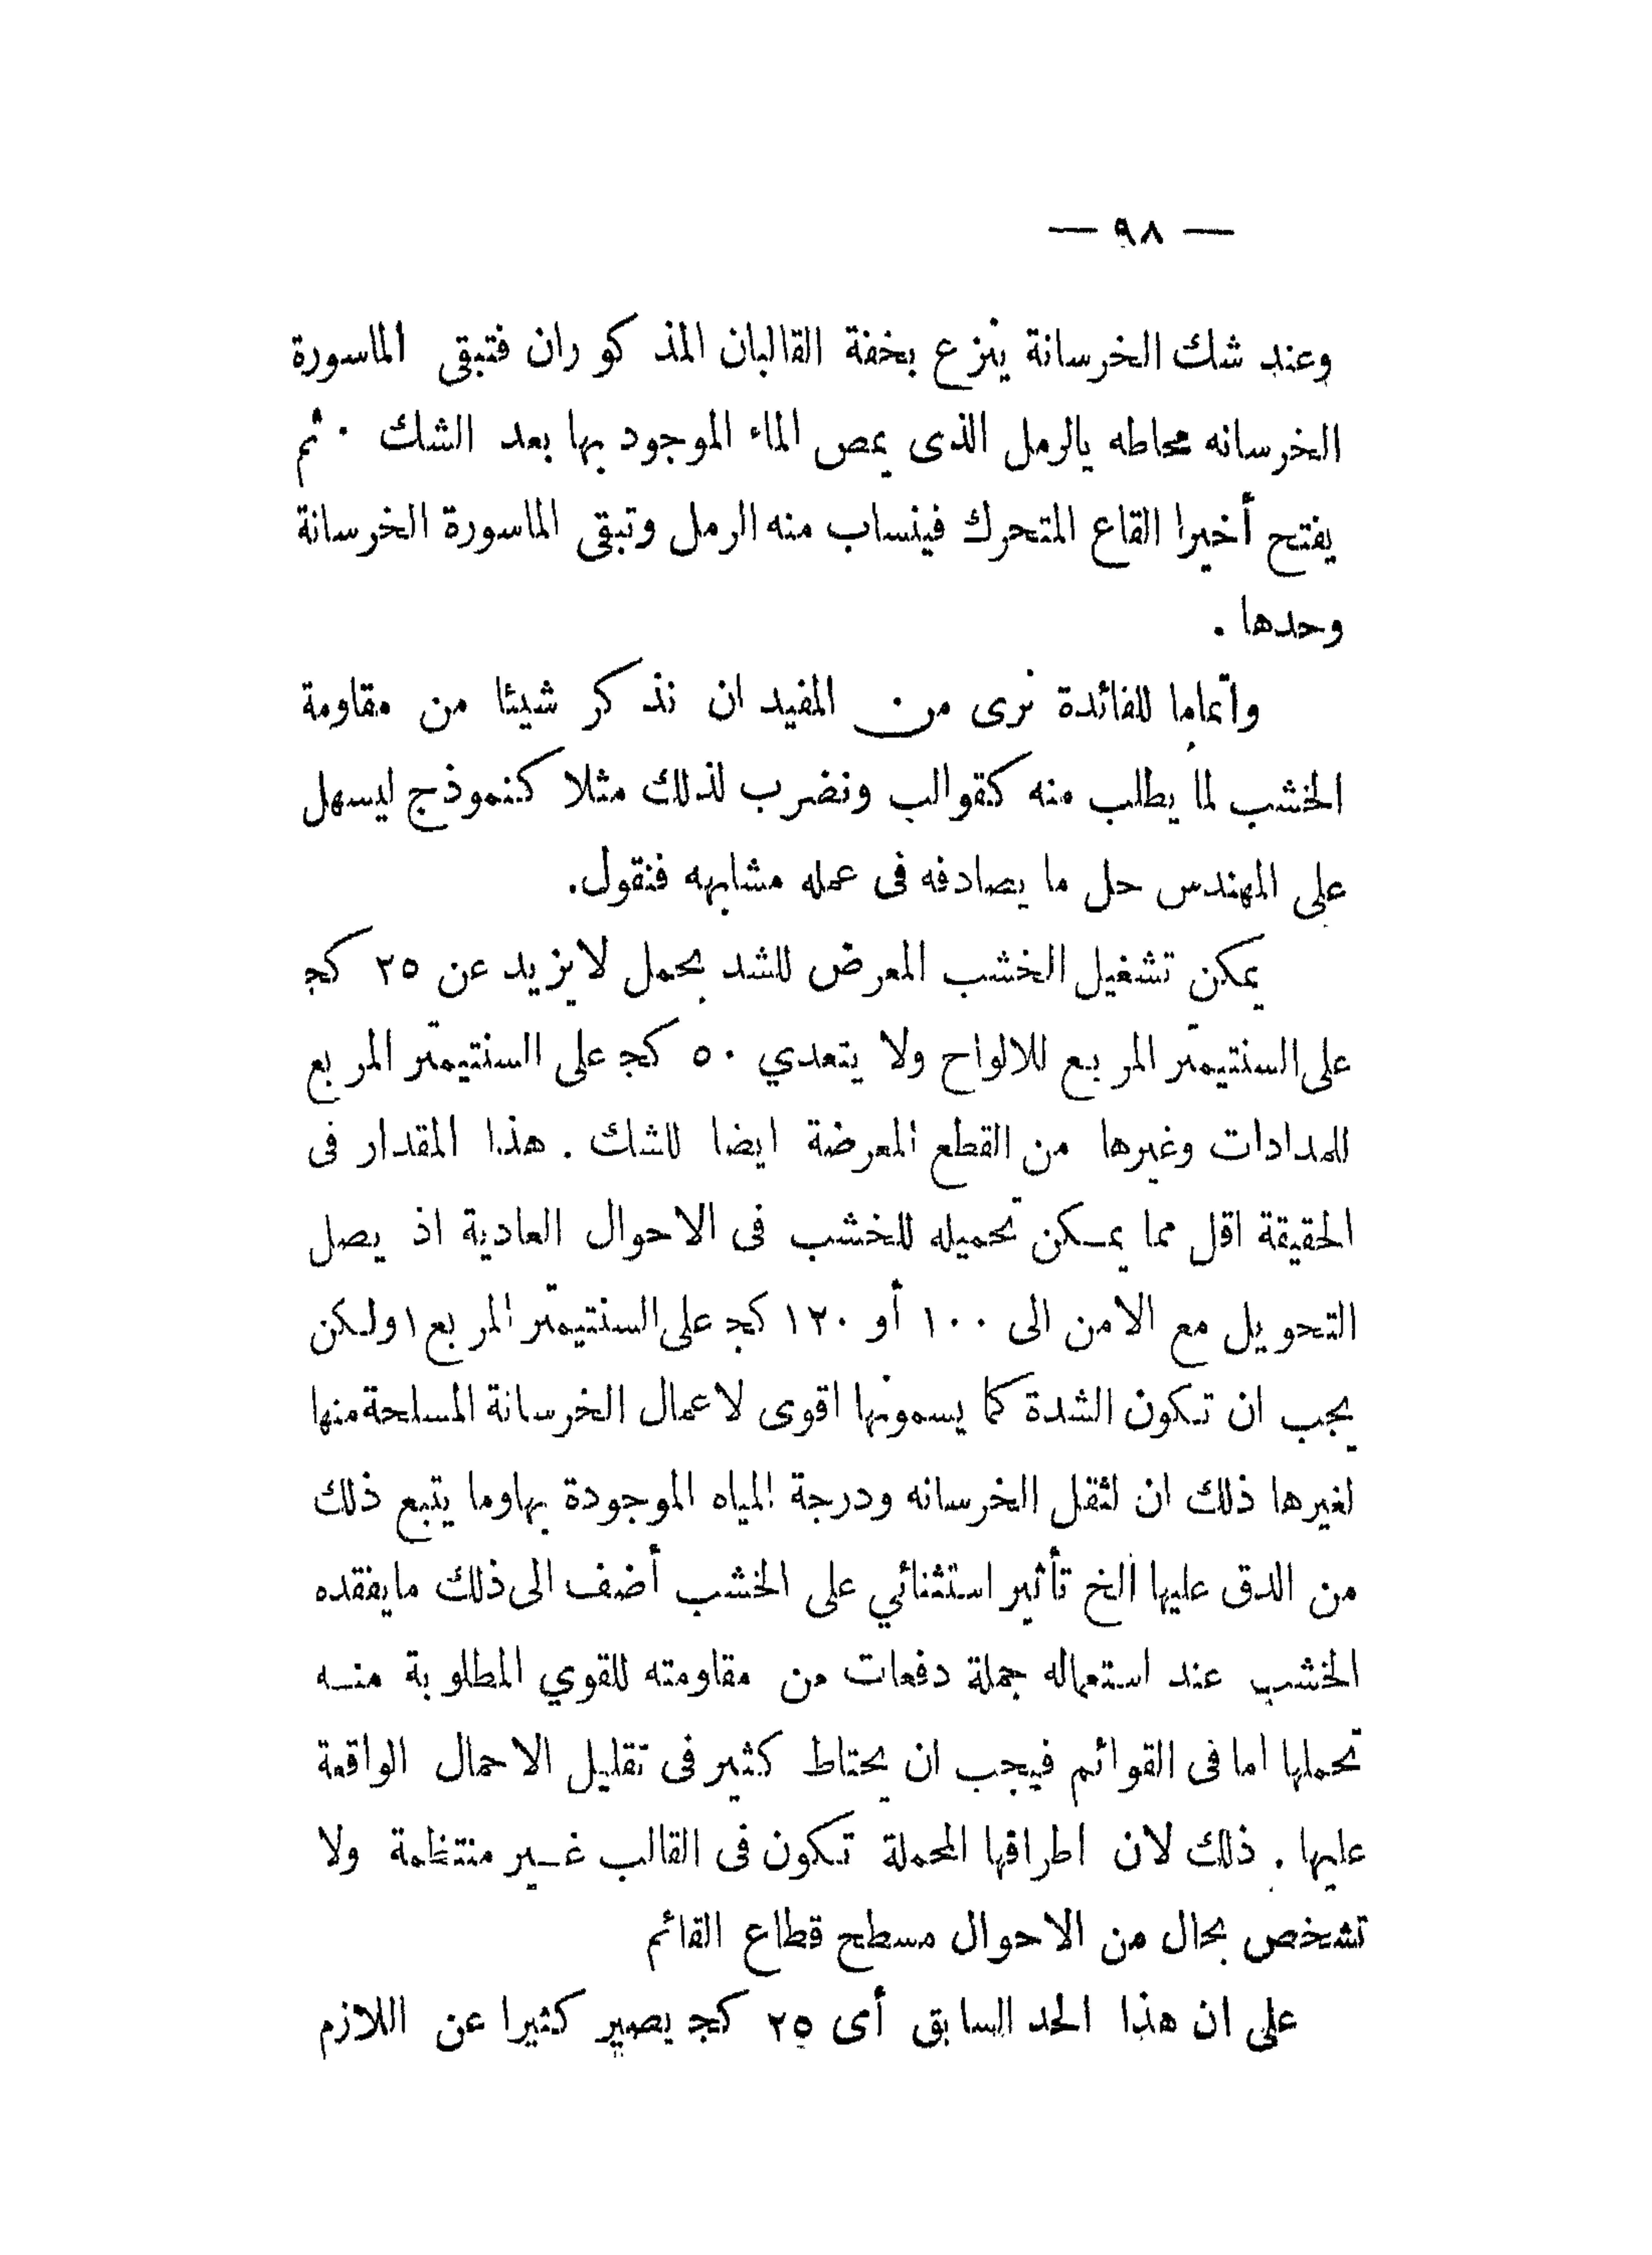 — ٩٨ —
وعند شك الخرسانة ينزع بخفة القالبان المذكوران فتبقى الماسورة
الخرسانه محاطه يالرمل الذى يمص الماء الموجود بها بعد الشك . ثم
يفتح أخيرا القاع المتحرك فينساب منه الرمل وتبقى الماسورة الخرسانة
وحدها .
واتماما للفائدة نرى من المفيد ان نذكر شيئا من مقاومة
الخشب لما يطلب منه كقوالب ونضرب لذلك مثلا كنموذج ليسهل
على المهندس حل ما يصادفه فى عمله مشابهه فنقول.
يمكن تشغيل الخشب المعرض للشد بحمل لايزيد عن ٢٥ كج
على السنتيمتر المربع للالواح ولا يتعدي ٥٠ كج على السنتيمتر المربع
للمدادات وغيرها من القطع المعرضة ايضا للشك . هذا المقدار فى
الحقيقة اقل مما يمكن تحميله للخشب فى الاحوال العادية اذ يصل
التحويل مع الامن الى ١٠٠ أو ١٢٠ كج على السنتيمتر المربع ا ولكن
يجب ان تكون الشدة كما يسمونها اقوى لاعمال الخرسانة المسلحة منها
لغيرها ذلك ان لثقل الخرسانه ودرجة المياه الموجودة بها وما يتبع ذلك
من الدق عليها الخ تأثير استثنائي على الخشب أضف الى ذلك مايفقده
الخشب عند استعماله جملة دفعات من مقاومته للقوي المطلوبة منه
تحملها اما فى القوائم فيجب ان يحتاط كثير فى تقليل الاحمال الواقعة
عليها . ذلك لان اطرافها المحملة تكون فى القالب غير منتظمة ولا
تشخص بحال من الاحوال مسطح قطاع القائم
على ان هذا الحد السابق أى ٢٥ كج يصير كثيرا عن اللازم